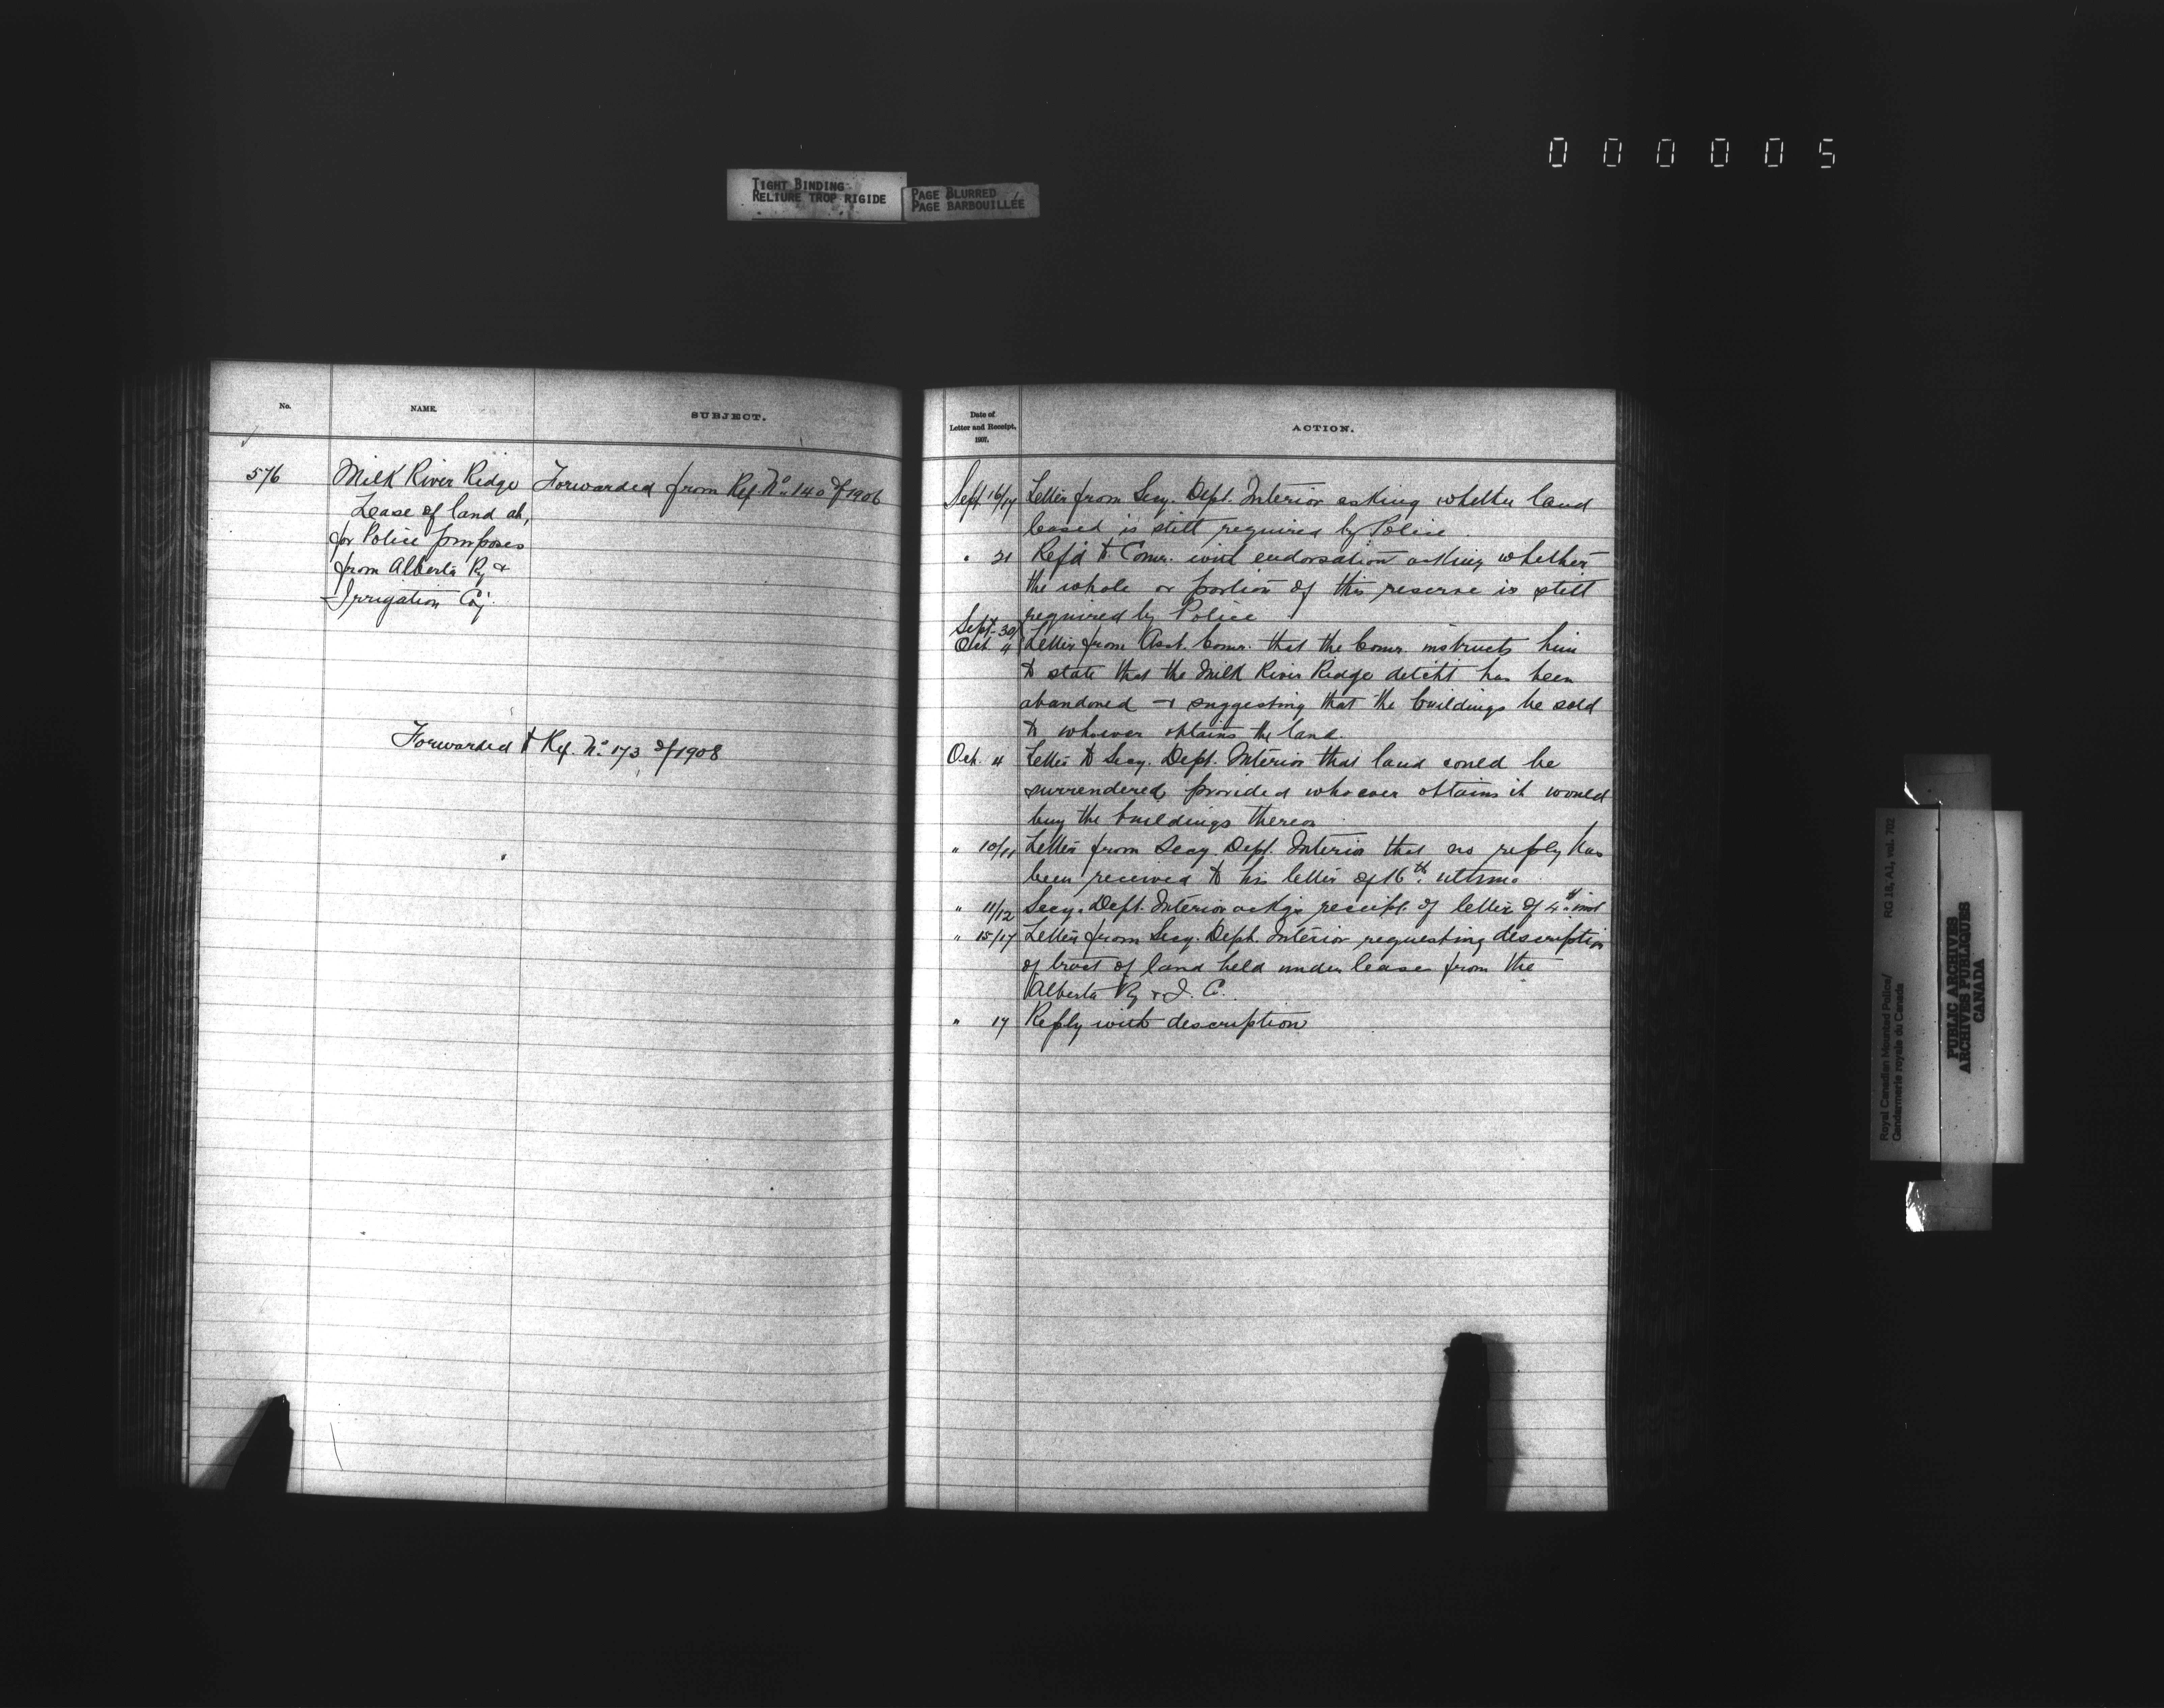 000005
TIGHT BINDING
RELIURE TROP RIGIDE
PAGE BLURRED
PAGE BARBOUILLÉE
No.
NAME.
SUBJECT.
576
Milk River Ridge
Lease of land at,
for Police purposes
from Alberta Ry &
Irrigation Coy.
Forwarded from Ref. No. 140 of 1906
Forwarded to Ref. No. 173 of 1908
Date of
Letter and Receipt,
1907.
ACTION.
Sept. 16/17 Letter from Secy. Dept. Interior asking whether land
leased is still required by Police.
" 21 Refd to Comr. with endorsation asking whether
the whole or portion of this reserve is still
required by Police
Sept. 30/
Oct. 4 Letter from Asst. Comr. that the Comr. instructs him
to state that the Milk River Ridge detcht has been
abandoned & suggesting that the buildings be sold
to whoever obtains the land.
Oct. 4 Letter to Secy. Dept. Interior that land could be
surrendered provided whoever obtains it would
buy the buildings thereon
" 10/11 Letter from Secy. Dept. Interior that no reply has
been received to his letter of 16th. ultimo.
" 11/12 Secy. Dept. Interior ackg. receipt. of letter of 4th inst
" 15/17 Letter from Secy. Dept. Interior requesting description
of tract of land held under lease from the
Alberta Ry & I. C.
" 17 Reply with description
Royal Canadian Mounted Police/
Gendarmerie royale du Canada
RG 18, A1, vol. 702
PUBLIC ARCHIVES
ARCHIVES PUBLIQUES
CANADA